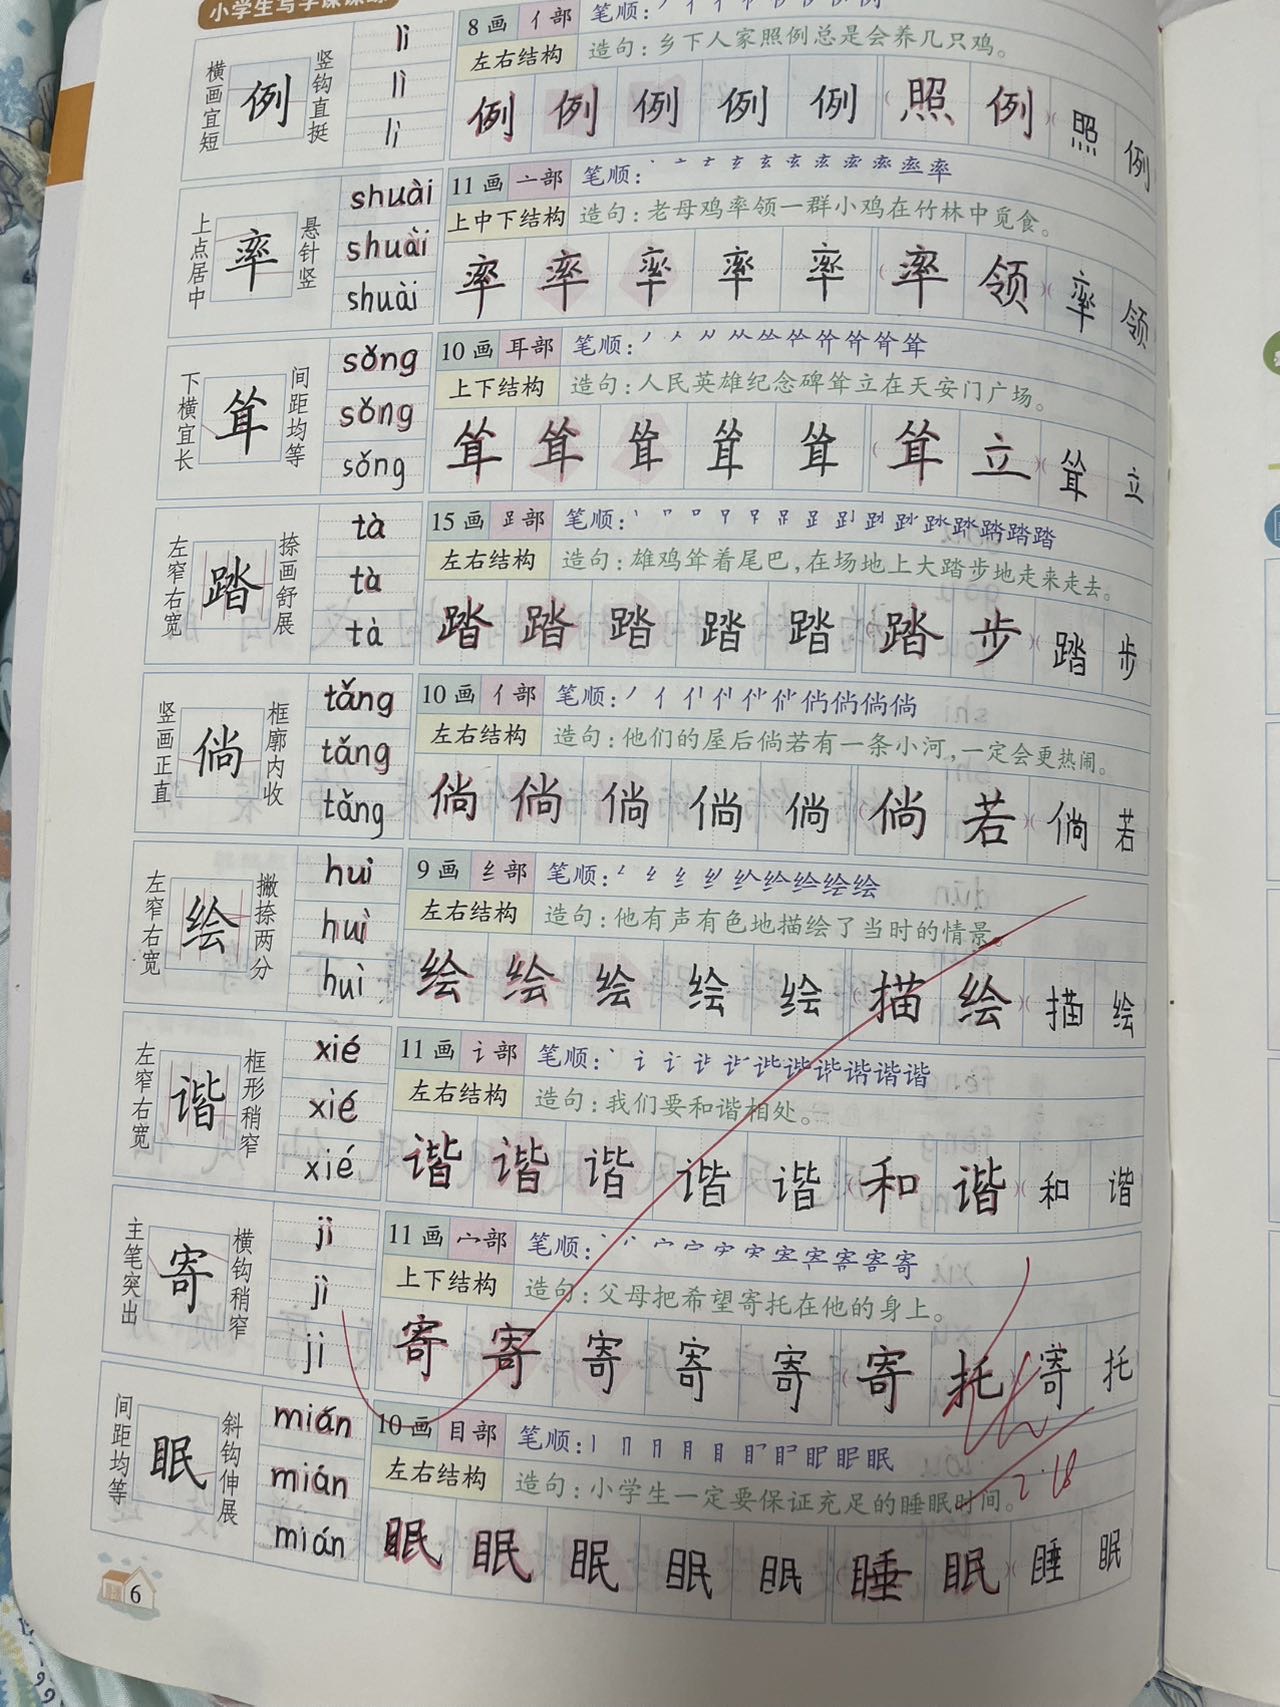 小学生写字课课练
横画宜短 例 竖钩直挺
lì
lì
lì
8画 亻部 笔顺:
左右结构 造句:乡下人家照例总是会养几只鸡。
例 例 例 例 例 (照 例)(照 例
上点居中 率 悬针竖
shuài
shuài
shuài
11画 亠部 笔顺:
上中下结构 造句:老母鸡率领一群小鸡在竹林中觅食。
率 率 率 率 率 (率 领)(率 领
下横宜长 耸 间距均等
sǒng
sǒng
sǒng
10画 耳部 笔顺:
上下结构 造句:人民英雄纪念碑耸立在天安门广场。
耸 耸 耸 耸 耸 (耸 立)(耸 立
左窄右宽 踏 捺画舒展
tà
tà
tà
15画 𧾷部 笔顺:
左右结构 造句:雄鸡耸着尾巴,在场地上大踏步地走来走去。
踏 踏 踏 踏 踏 (踏 步)(踏 步
竖画正直 倘 框廓内收
tǎng
tǎng
tǎng
10画 亻部 笔顺:
左右结构 造句:他们的屋后倘若有一条小河,一定会更热闹。
倘 倘 倘 倘 倘 (倘 若)(倘 若
左窄右宽 绘 撇捺两分
huì
huì
huì
9画 纟部 笔顺:
左右结构 造句:他有声有色地描绘了当时的情景。
绘 绘 绘 绘 绘 (描 绘)(描 绘
左窄右宽 谐 框形稍窄
xié
xié
xié
11画 讠部 笔顺:
左右结构 造句:我们要和谐相处。
谐 谐 谐 谐 谐 (和 谐)(和 谐
主笔突出 寄 横钩稍窄
jì
jì
jì
11画 宀部 笔顺:
上下结构 造句:父母把希望寄托在他的身上。
寄 寄 寄 寄 寄 (寄 托)(寄 托
间距均等 眠 斜钩伸展
mián
mián
mián
10画 目部 笔顺:
左右结构 造句:小学生一定要保证充足的睡眠时间。
2.18
眠 眠 眠 眠 眠 (睡 眠)(睡 眠
6